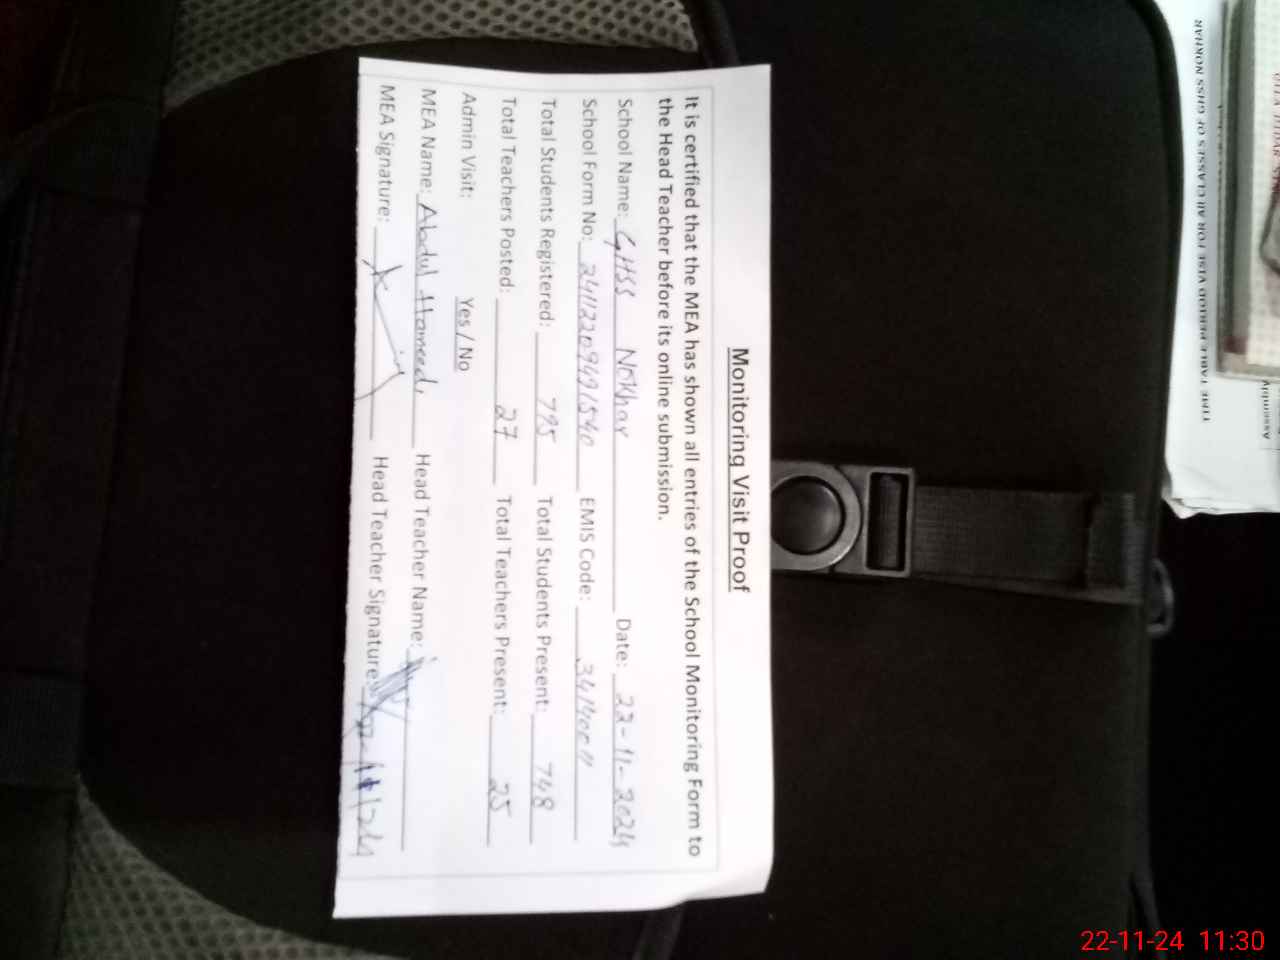 Monitoring Visit Proof
It is certified that the MEA has shown all entries of the School Monitoring Form to
the Head Teacher before its online submission.
School Name: GHSS Nokhar Date: 22-11-2024
School Form No: 24112209491540 EMIS Code:
Total Students Registered: 795 Total Students Present: 748
Total Teachers Posted: 27 Total Teachers Present: 25
Admin Visit: Yes / No
MEA Name: Abdul Hameed Head Teacher Name:
MEA Signature: Head Teacher Signature:
TIME TABLE PERIOD VISE FOR All CLASSES OF GHSS NOKHAR
22-11-24 11:30